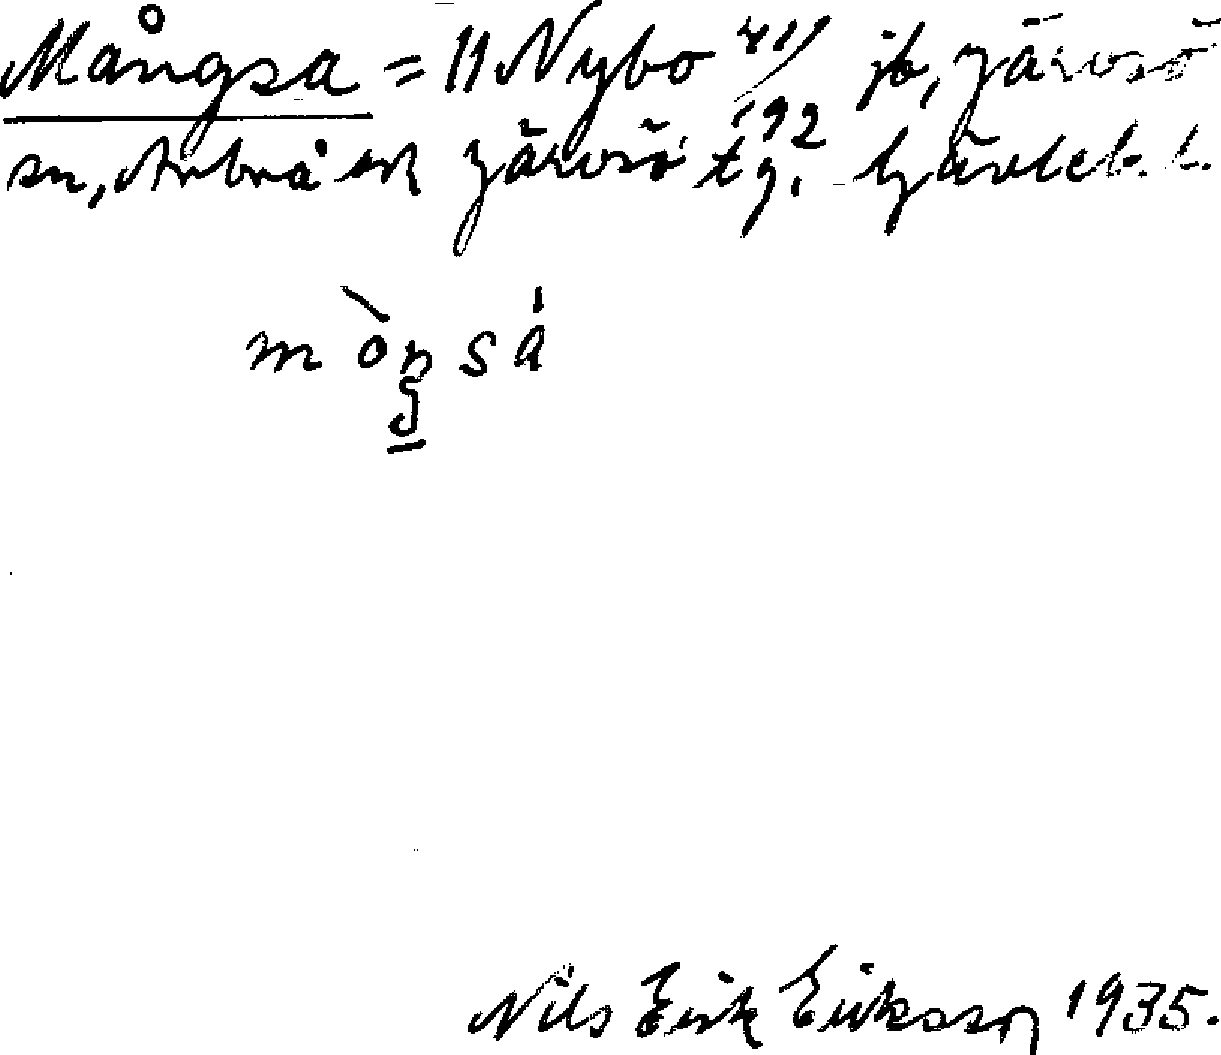 Mångsa = 11 Nybo jb, Järvsö
sn, Arbrå och Järvsö tg. Gävleb. l.
mòŋsá
Nils Erik Eriksson 1935.